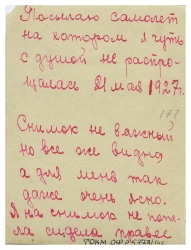 Посылаю самолет
на котором я чуть
с душой не распро-
щалась 21 мая 1927г.
Снимок не важный
но все же видно
а для меня так
даже очень ясно.
Я на снимок не попа-
ла сидела правее
ТОКМ ОФ